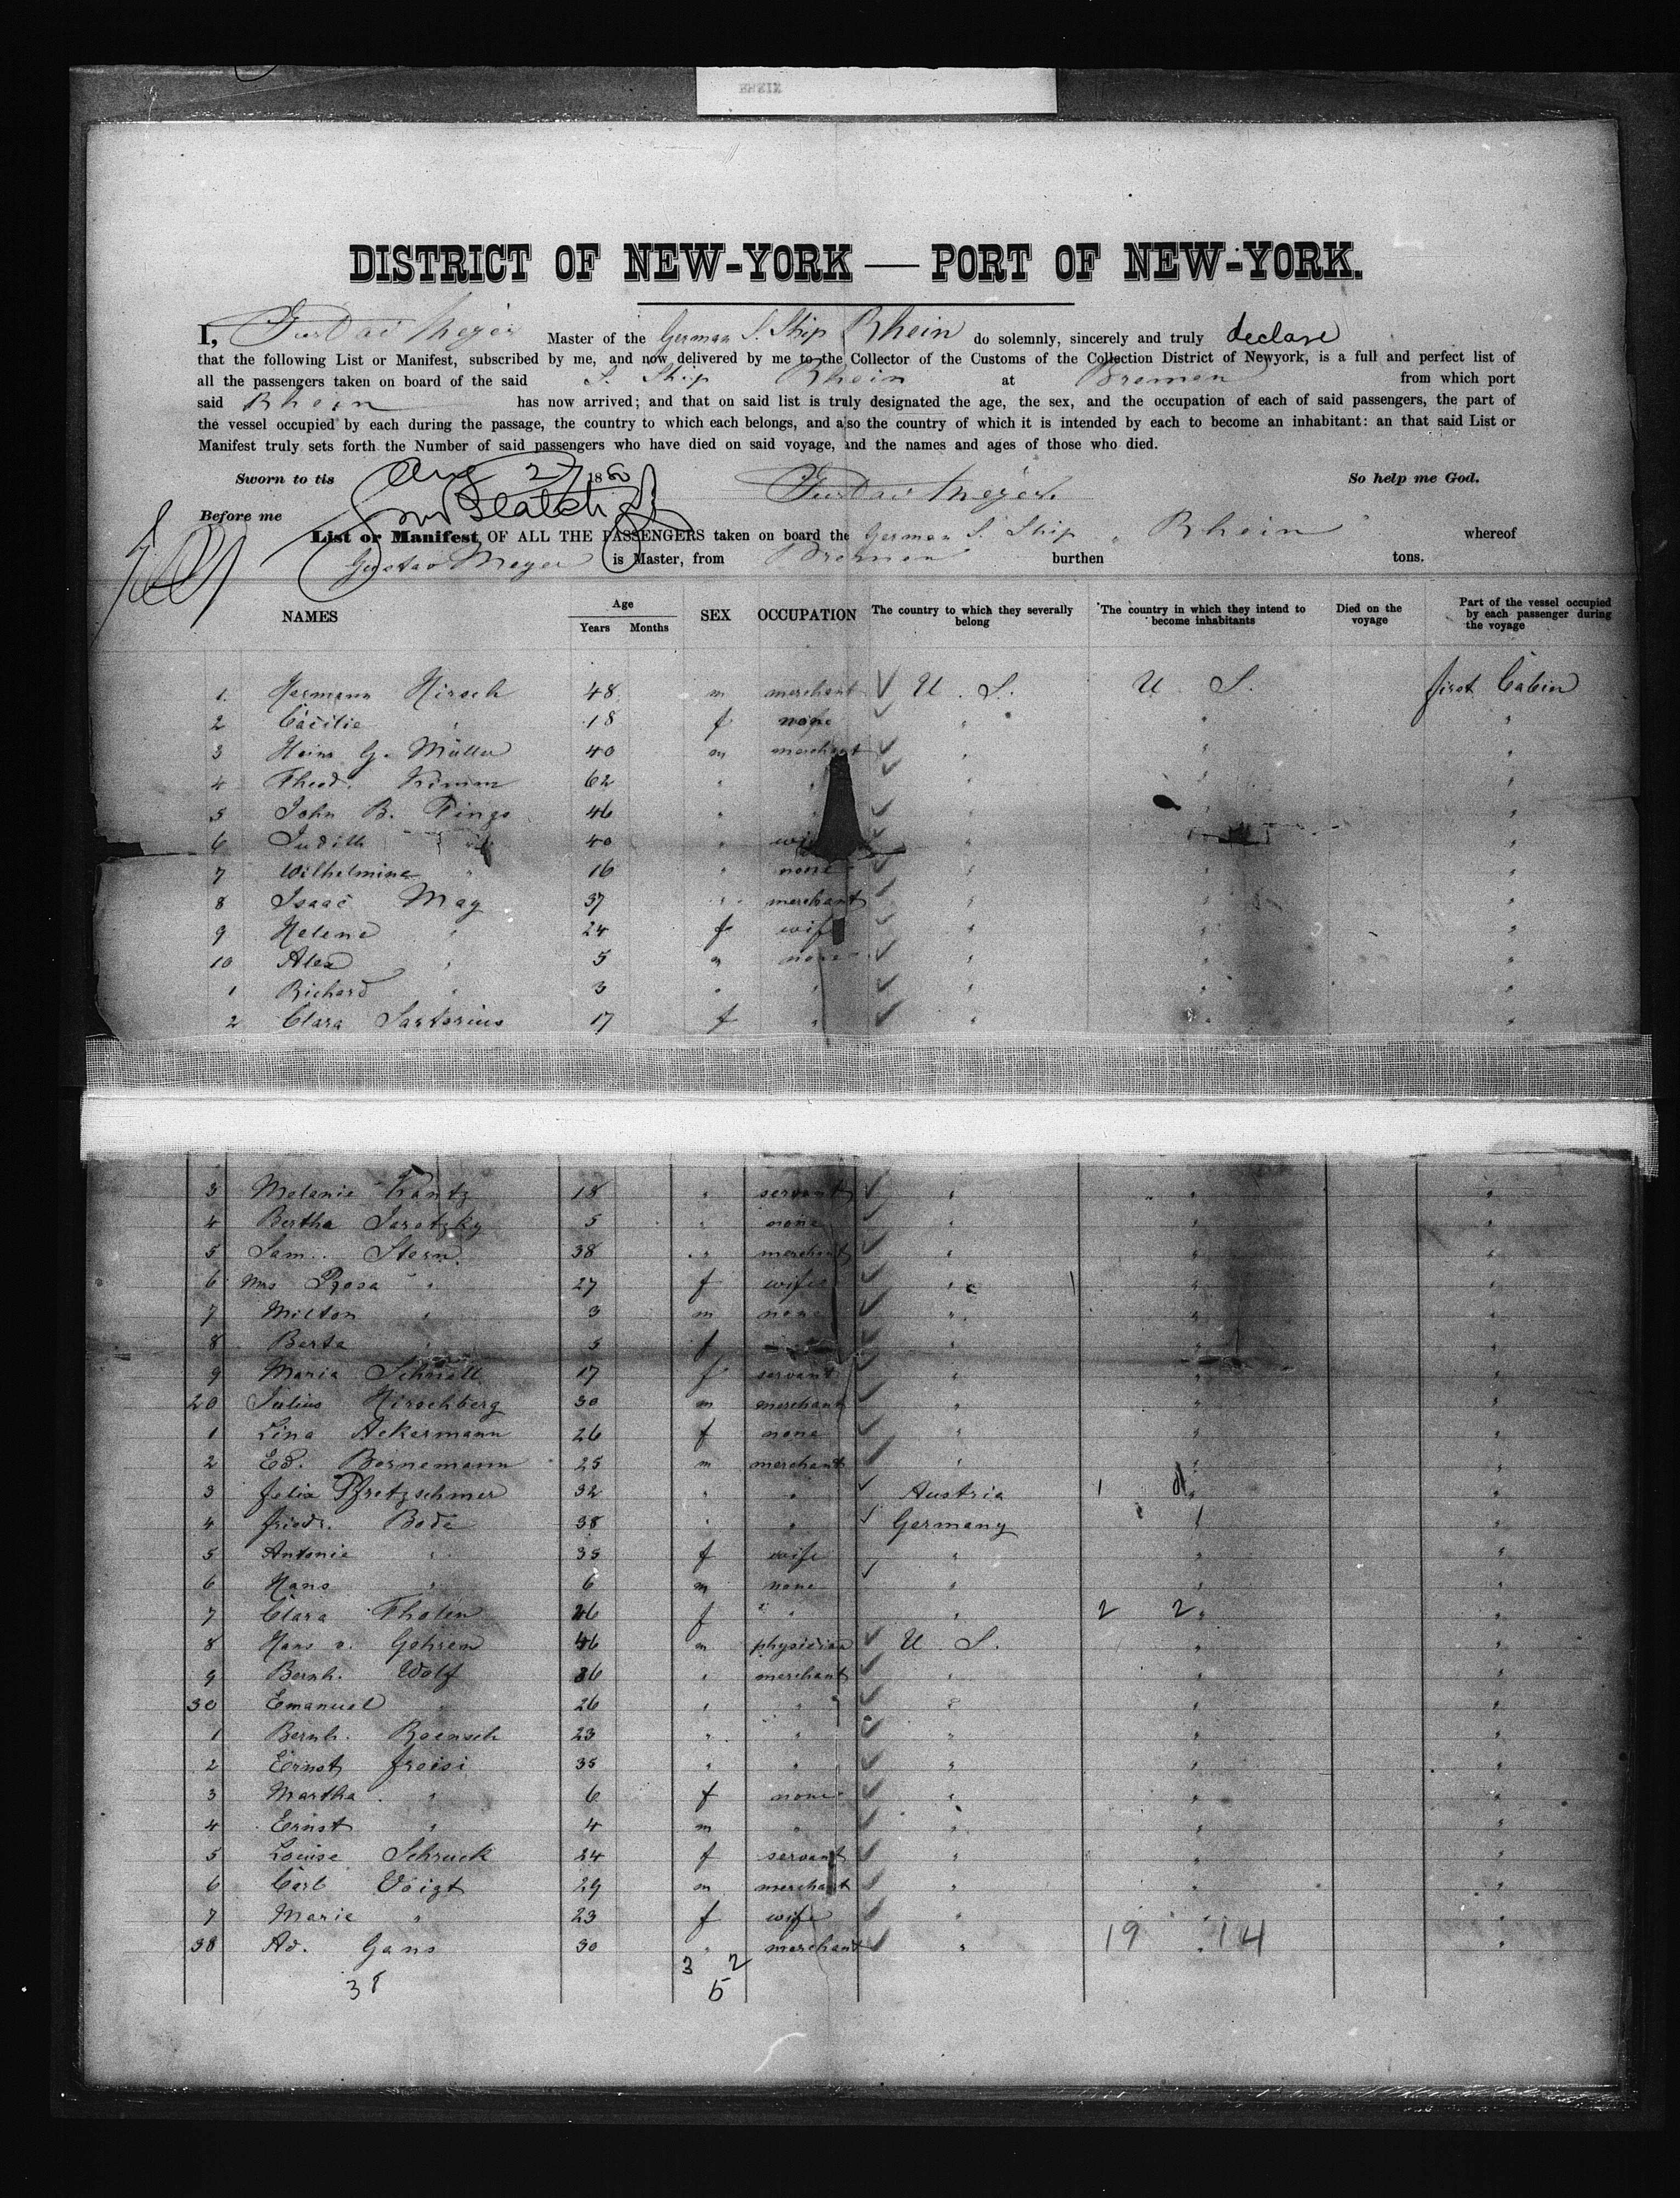 DISTRICT OF NEW-YORK — PORT OF NEW-YORK.
I, Gustav Meyer Master of the German S. Ship Rhein do solemnly, sincerely and truly declare
that the following List or Manifest, subscribed by me, and now delivered by me to the Collector of the Customs of the Collection District of Newyork, is a full and perfect list of
all the passengers taken on board of the said S. Ship Rhein at Bremen from which port
said Rhein has now arrived; and that on said list is truly designated the age, the sex, and the occupation of each of said passengers, the part of
the vessel occupied by each during the passage, the country to which each belongs, and also the country of which it is intended by each to become an inhabitant: an that said List or
Manifest truly sets forth the Number of said passengers who have died on said voyage, and the names and ages of those who died.
Sworn to tis Aug 27 1880 Gustav Meyer. So help me God.
Before me
List or Manifest OF ALL THE PASSENGERS taken on board the German S. Ship " Rhein " whereof
Gustav Meyer is Master, from Bremen burthen tons.
NAMES Age Years Months SEX OCCUPATION The country to which they severally belong The country in which they intend to become inhabitants Died on the voyage Part of the vessel occupied by each passenger during the voyage
1. Hermann Hirsch 48 m merchant U. S. U. S. first Cabin
2 Cäcilie " 18 f none " " "
3 Heinr G. Müller 40 m merchant " " "
4 Theod. 62 " " " " "
5 John B. 46 " " " " "
6 Judith " 40 " wife " " "
7 Wilhelmine " 16 " none " " "
8 Isaac May 37 " merchant " " "
9 Helene " 24 f wife " " "
10 Alex " 5 m none " " "
1 Richard " 3 " " " " "
2 Clara Sartorius 17 f " " " "
3 Melanie Frantz 18 " servant " " "
4 Bertha Jarotzky 5 " none " " "
5 Sam. Stern 38 " merchant " " "
6 Mrs Rosa " 27 f wife " " "
7 Milton " 3 m none " " "
8 Berta " 5 f " " " "
9 Maria Schnell 17 f servant " " "
20 Julius Hirschberg 30 m merchant " " "
1 Lina Ackermann 26 f none " " "
2 Ed. Bornemann 25 m merchant " " "
3 Felix Pfretzschmer 32 " " Austria 1 " "
4 Friedr. Bode 38 " " Germany " "
5 Antonie " 35 f wife " " "
6 Hans " 6 m none " " "
7 Clara Tholen 26 f " " 2 2 " "
8 Hans v. Gohren 46 m physician U. S. " "
9 Bernh. Wolf 36 " merchant " " "
30 Emanuel " 26 " " " " "
1 Bernh. Roensch 23 " " " " "
2 Ernst Freisi 35 " " " " "
3 Martha " 6 f none " " "
4 Ernst " 4 m " " " "
5 Louise Schruck 24 f servant " " "
6 Carl Voigt 29 m merchant " " "
7 Marie " 23 f wife " " "
38 Ad. Gans 30 " merchant " 19 " 14 "
3 2
38 5